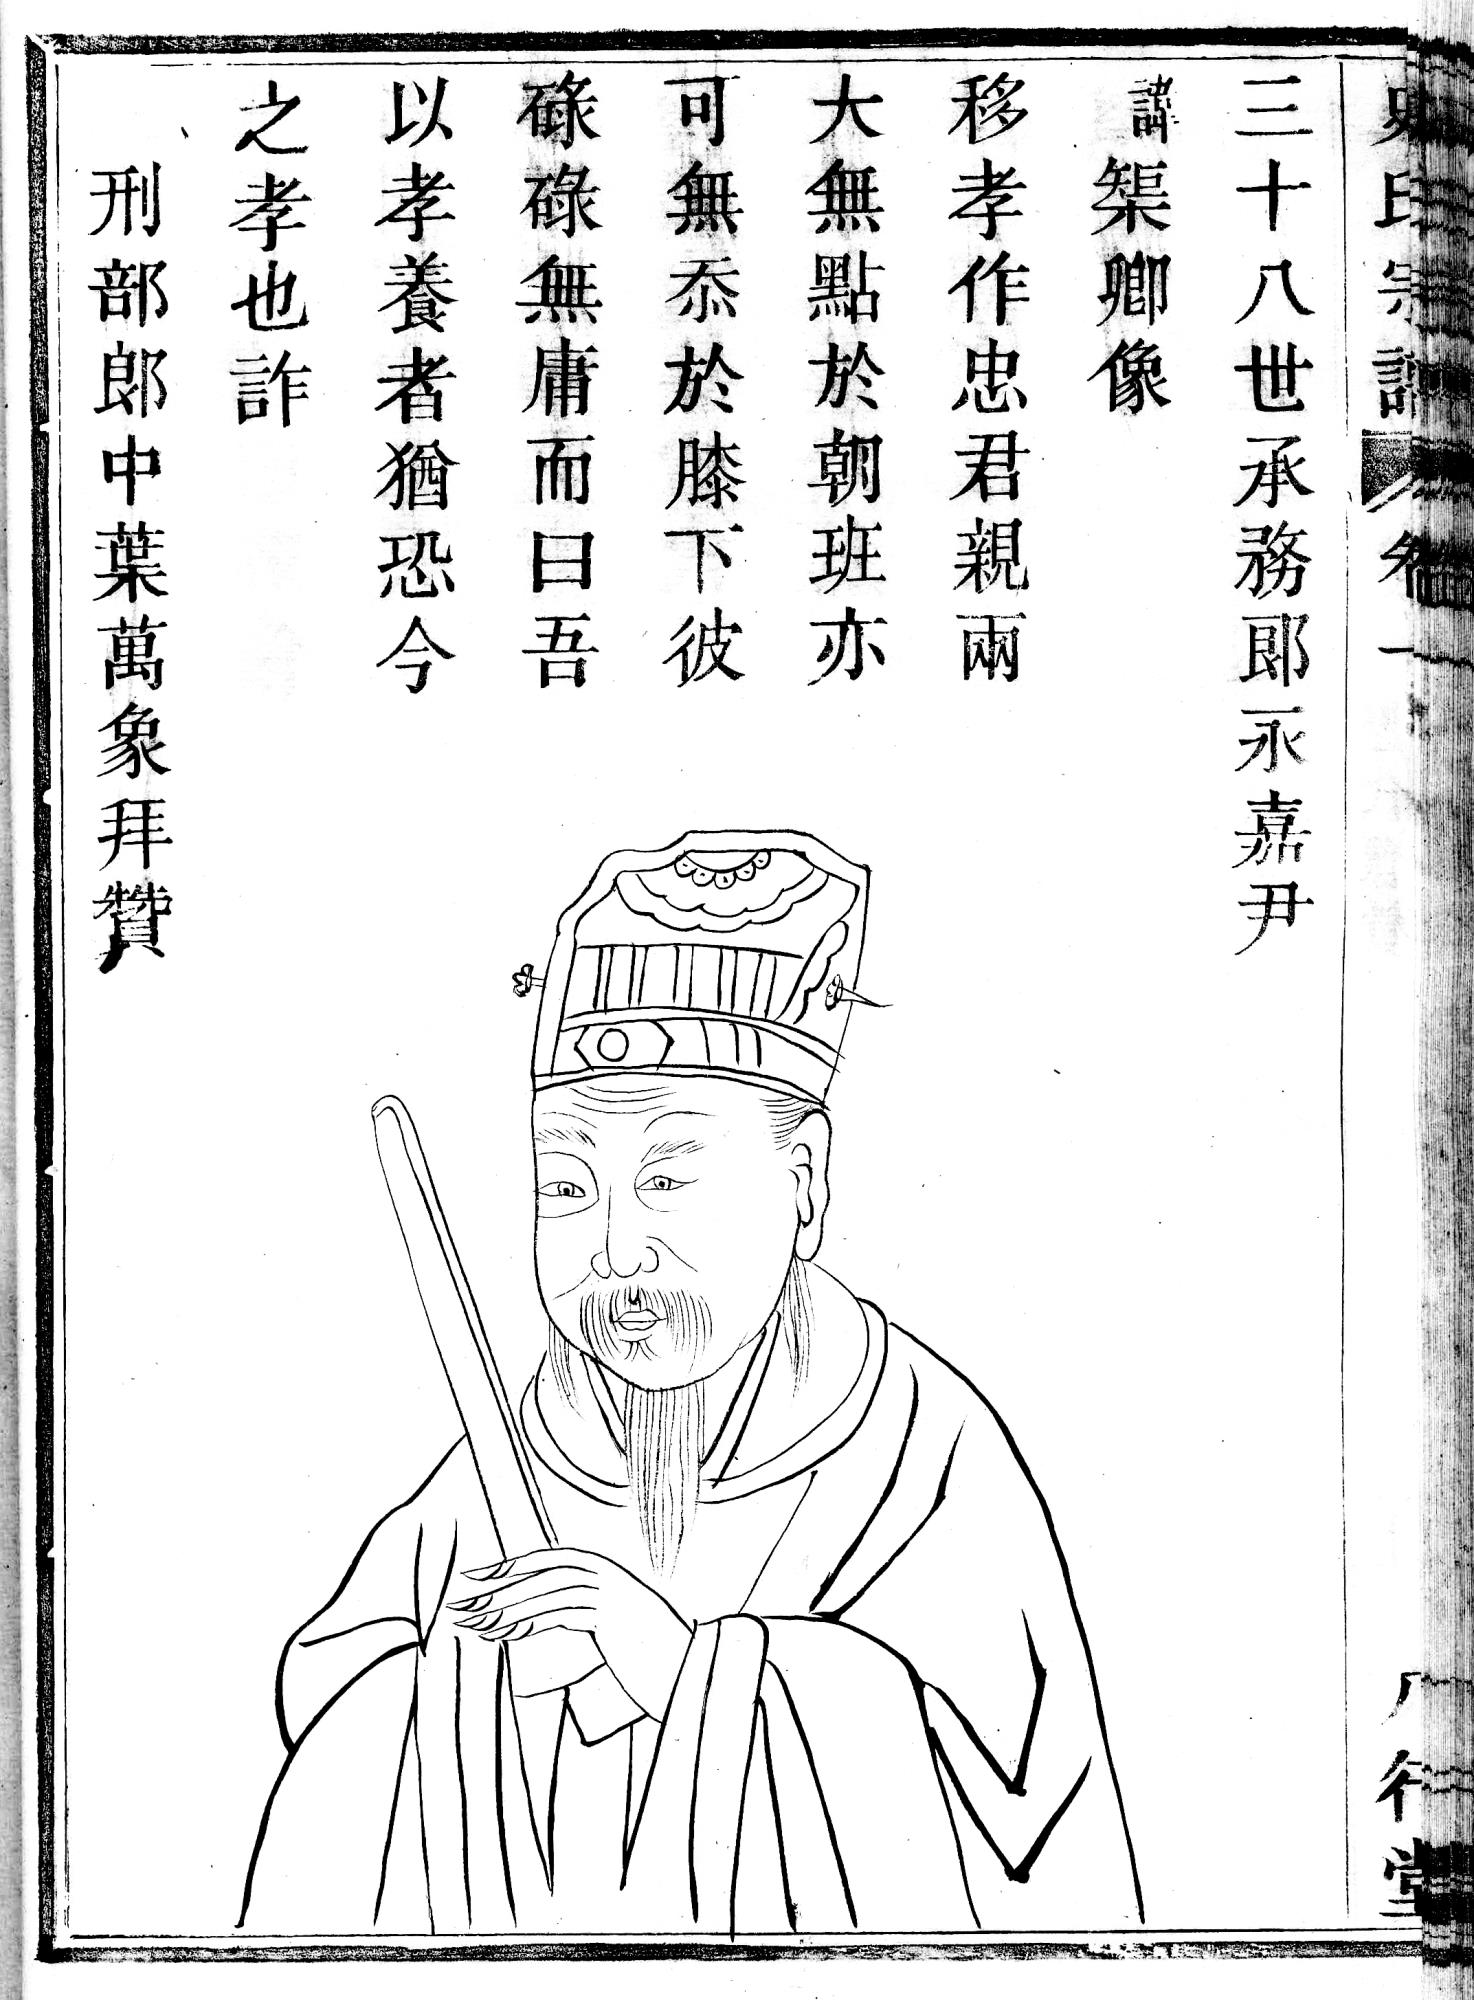 史氏宗譜 卷一 八行堂
三十八世承務郎永嘉尹
諱榘卿像
移孝作忠君親兩
大無點於朝班亦
可無忝於膝下彼
碌碌無庸而曰吾
以孝養者猶恐今
之孝也詐
刑部郎中葉萬象拜贊